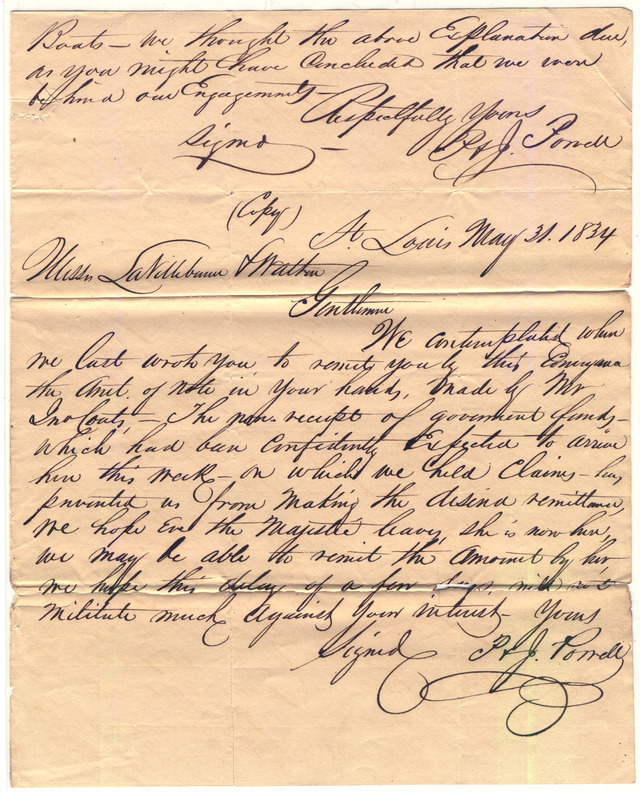 Boats — we thought the above Explanation due,
as you might have Concluded that we were
behind our Engagements —
Respectfully Yours
Signd — P & J. Powell
(Copy)
St. Louis May 31. 1834
Messrs &
Gentlemen
We contemplated when
we last wrote you, to remit you by this Conveyance
the Amt. of Note in Your hands, Made by Mr
Jno Couts, — The non. receipt of government funds —
which had been Confidently Expected to arrive
here this week — on which we held Claims — has
prevented us from Making the desired remittance,
we hope Ere the Majestic leaves, she is now here,
we may be able to remit the Amount by her
we hope this delay of a few days, will not
Militate much against Your interest — Yours
Signd P & J. Powell